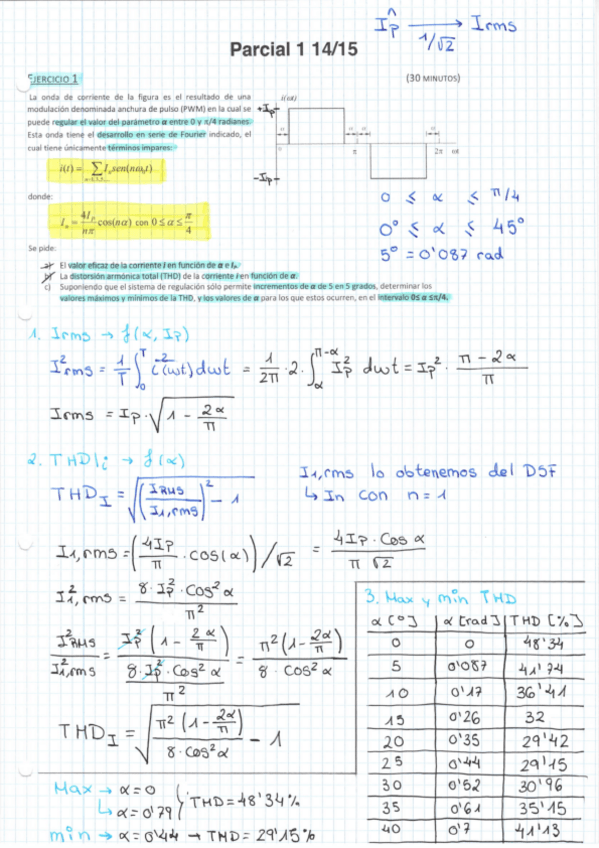 Îp → Irms
1/√2
Parcial 1 14/15
EJERCICIO 1
(30 MINUTOS)
La onda de corriente de la figura es el resultado de una
modulación denominada anchura de pulso (PWM) en la cual se
puede regular el valor del parámetro α entre 0 y π/4 radianes.
Esta onda tiene el desarrollo en serie de Fourier indicado, el
cual tiene únicamente términos impares:
i(ωt)
+Ip
-Ip
α α α α
π 2π ωt
i(t) = ∑ Iₙsen(nω₀t)
n=1,3,5...
donde:
Iₙ = 4Ip/nπ cos(nα) con 0 ≤ α ≤ π/4
0 ≤ α ≤ π/4
0° ≤ α ≤ 45°
5° = 0'087 rad
Se pide:
a) El valor eficaz de la corriente i en función de α e Iₚ.
b) La distorsión armónica total (THD) de la corriente i en función de α.
c) Suponiendo que el sistema de regulación sólo permite incrementos de α de 5 en 5 grados, determinar los
valores máximos y mínimos de la THD, y los valores de α para los que estos ocurren, en el intervalo 0≤ α ≤π/4.
1. Irms → f(α, Ip)
I²rms = 1/T ∫₀ᵀ i²(ωt) dωt = 1/2π · 2 · ∫_α^(π-α) Ip² dωt = Ip² · (π - 2α)/π
Irms = Ip · √(1 - 2α/π)
2. THD|i → f(α)
THD_I = √((IRMS/I1,rms)² - 1)
I1,rms lo obtenemos del DSF
↳ In con n = 1
I1,rms = (4Ip/π · cos(α)) / √2 = 4Ip · Cos α / π √2
I²1,rms = 8 · Ip² · Cos² α / π²
I²RMS / I²1,rms = Ip² (1 - 2α/π) / (8 · Ip² · Cos² α / π²) = π² (1 - 2α/π) / 8 · Cos² α
THD_I = √(π² (1 - 2α/π) / 8 · Cos² α - 1)
3. Max y min THD
α [°] α [rad] THD [%]
0 0 48'34
5 0'087 41'74
10 0'17 36'41
15 0'26 32
20 0'35 29'42
25 0'44 29'15
30 0'52 30'96
35 0'61 35'15
40 0'7 41'13
Max → α = 0
↳ α = 0'79
THD = 48'34 %
min → α = 0'44 → THD = 29'15 %